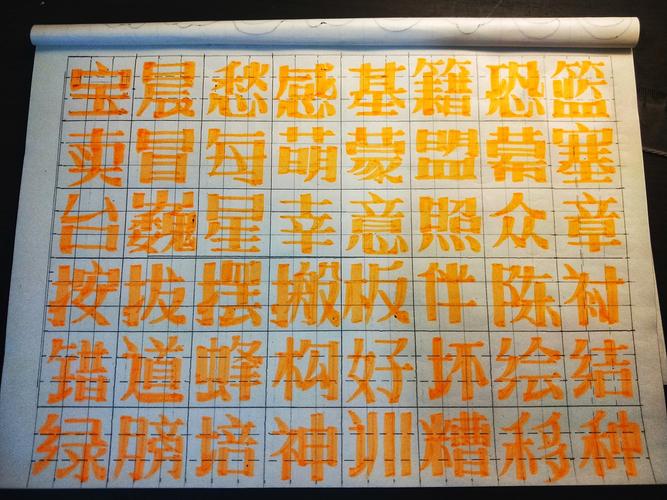 宝晨愁感基籍恐篮
卖冒每萌蒙盟幕塞
台巍星幸意照众章
按拔摆搬板伴陈衬
错道蜂构好坏绘结
绿膀培神训糟移种